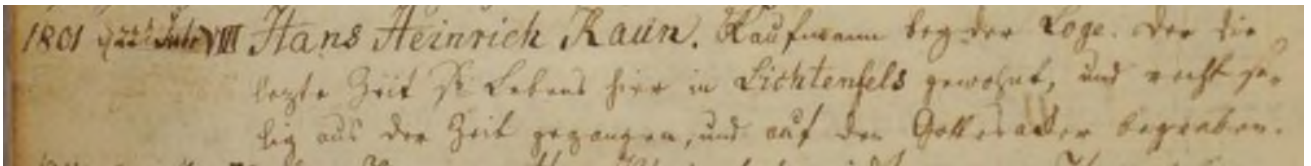 1801 d 22t Julr VIII Hans Heinrich Raun. Kaufmann bey der Loge. der die
lezte Zeit Ss Lebens hier in Lichtenfels gewohnt, und recht se-
lig aus der Zeit gegangen, und auf den Gottesacker begraben.